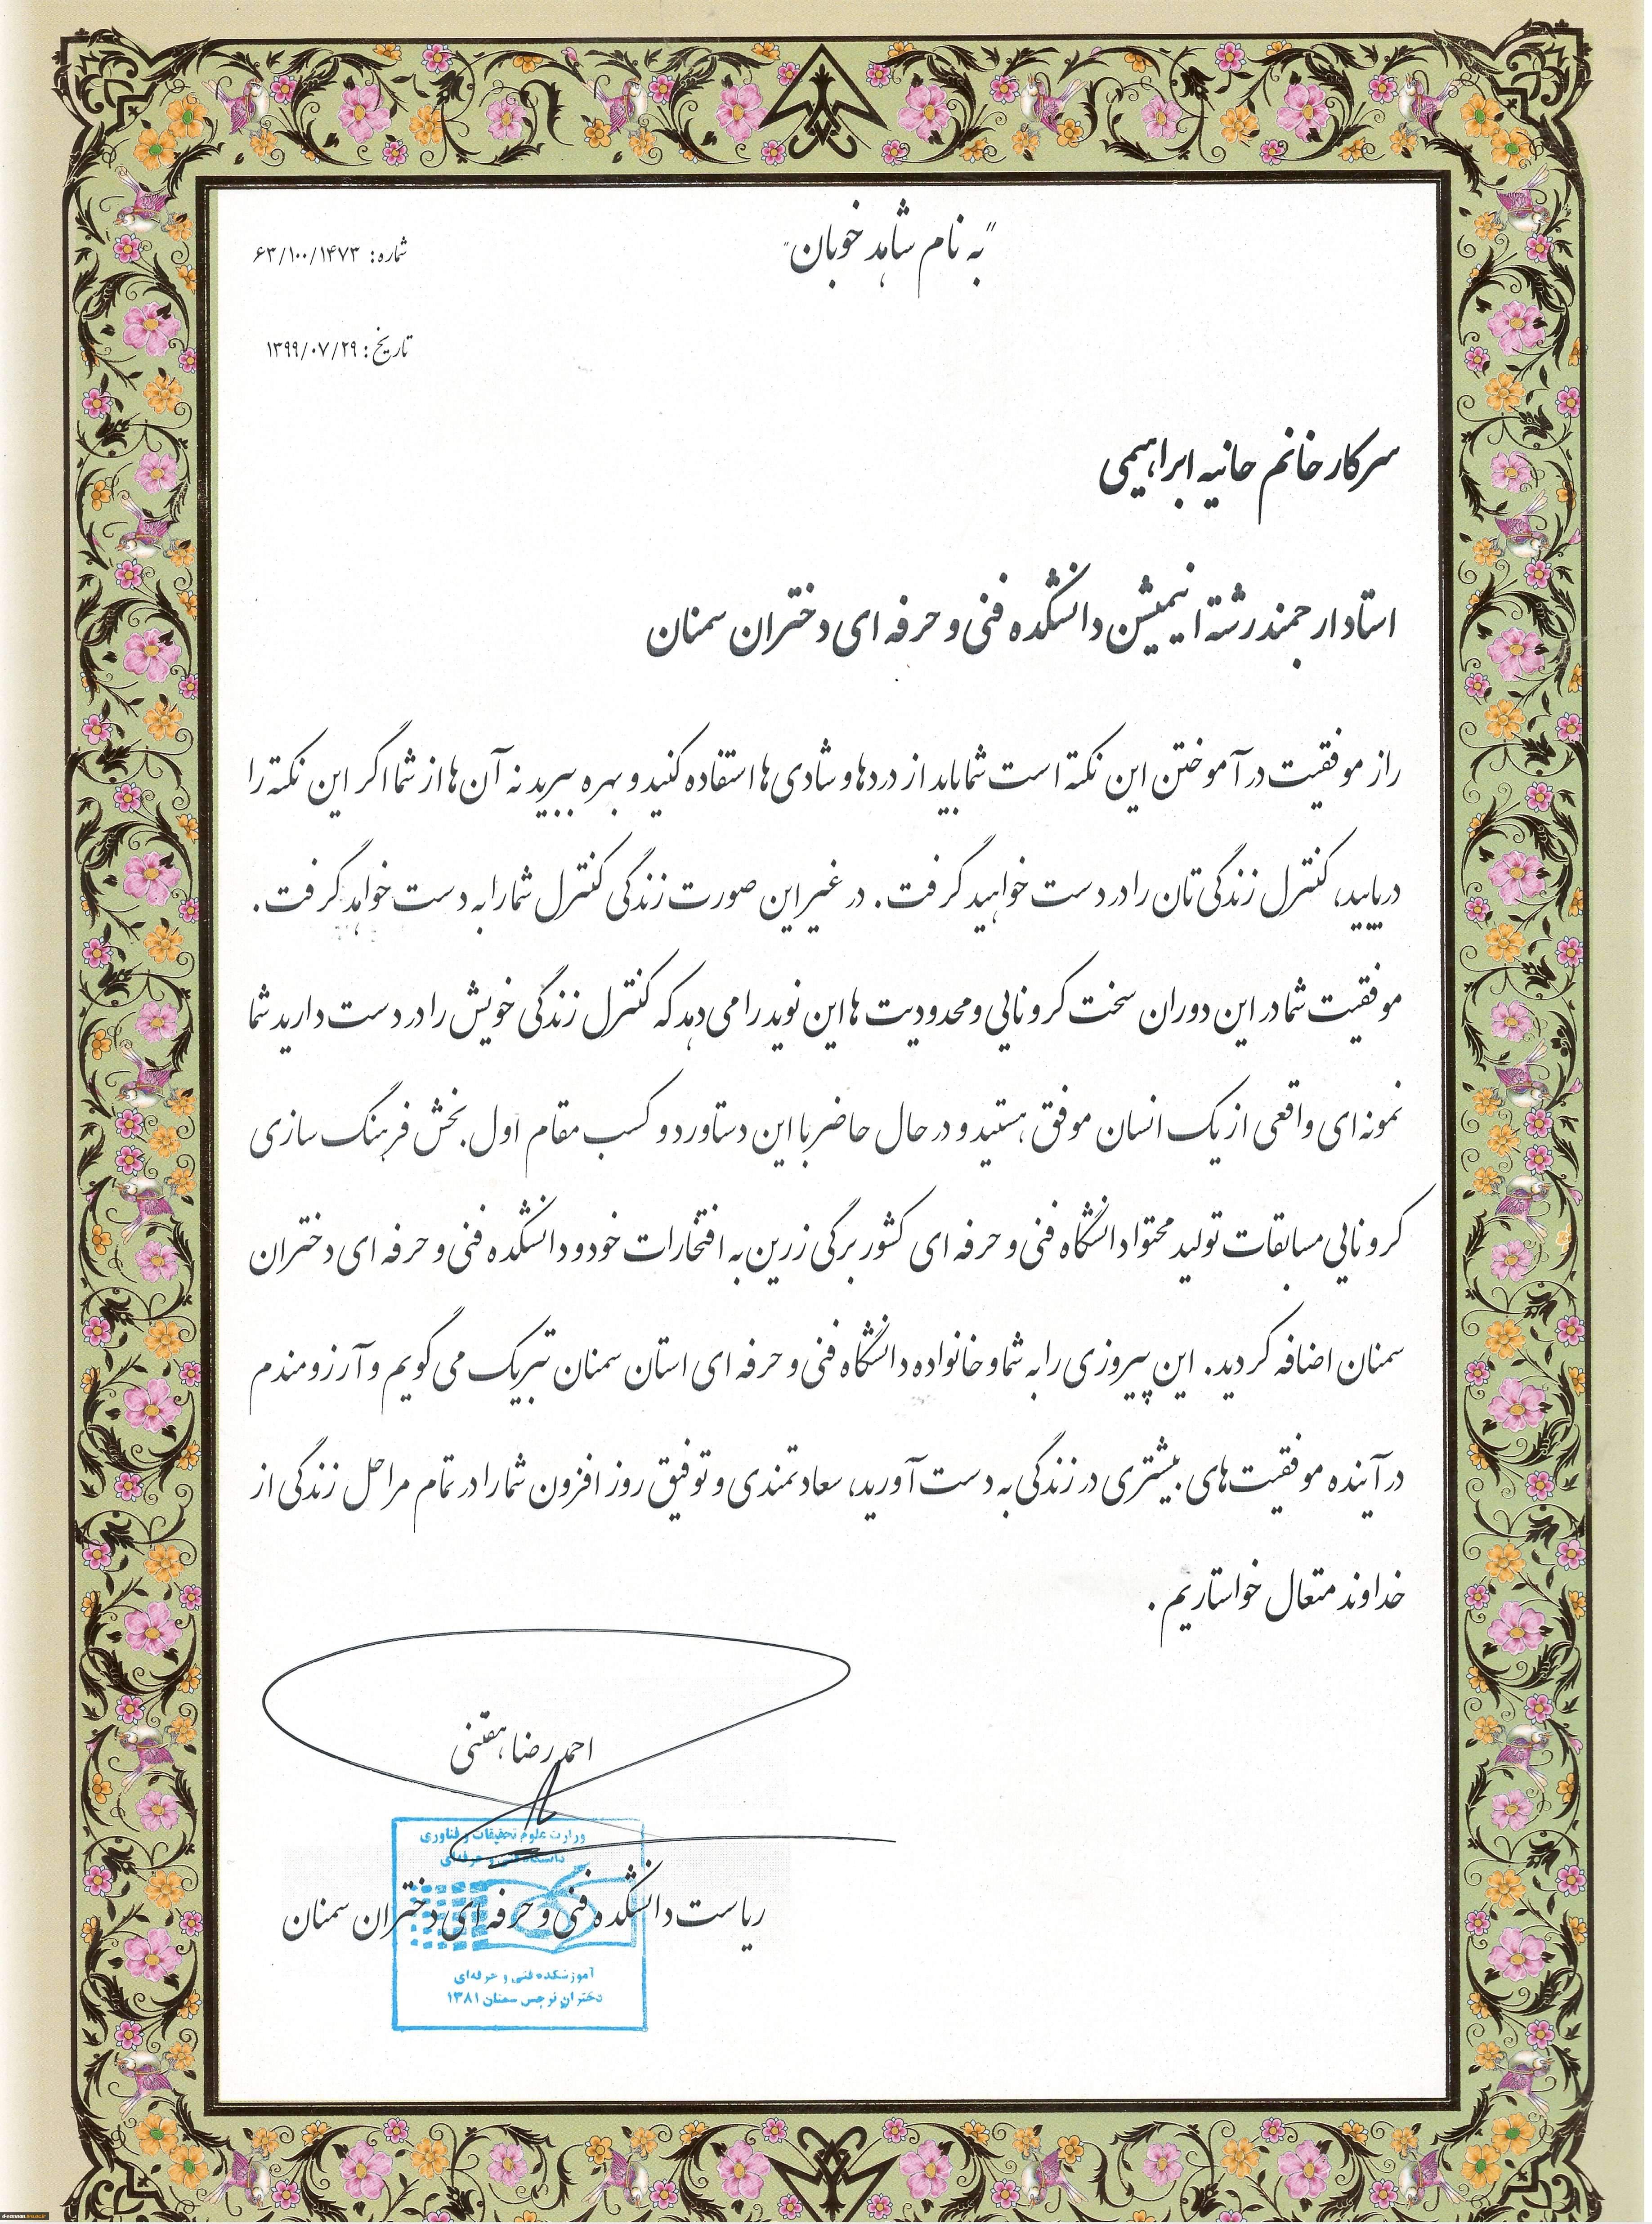 "به نام شاهد خوبان"
شماره: ۶۳/۱۰۰/۱۴۷۳
تاریخ: ۱۳۹۹/۰۷/۲۹
سرکار خانم حانیه ابراهیمی
استاد ارجمند رشته انیمیشن دانشکده فنی و حرفه ای دختران سمنان
راز موفقیت در آموختن این نکته است شما باید از دردها و شادی ها استفاده کنید و بهره ببرید نه آن ها از شما اگر این نکته را
دریابید، کنترل زندگی تان را در دست خواهید گرفت. در غیر این صورت زندگی کنترل شما را به دست خواهد گرفت.
موفقیت شما در این دوران سخت کرونایی و محدودیت ها این نوید را می دهد که کنترل زندگی خویش را در دست دارید شما
نمونه ای واقعی از یک انسان موفق هستید و در حال حاضر با این دستاورد و کسب مقام اول بخش فرهنگ سازی
کرونایی مسابقات تولید محتوا دانشگاه فنی و حرفه ای کشور برگی زرین به افتخارات خود و دانشکده فنی و حرفه ای دختران
سمنان اضافه کردید. این پیروزی را به شما و خانواده دانشگاه فنی و حرفه ای استان سمنان تبریک می گویم و آرزومندم
در آینده موفقیت های بیشتری در زندگی به دست آورید، سعادتمندی و توفیق روز افزون شما را در تمام مراحل زندگی از
خداوند متعال خواستاریم.
احمد رضا هفتنی
وزارت علوم تحقیقات و فناوری
دانشگاه فنی و حرفه‌ای
ریاست دانشکده فنی و حرفه ای دختران سمنان
آموزشکده فنی و حرفه‌ای
دختران نرجس سمنان ۱۳۸۱